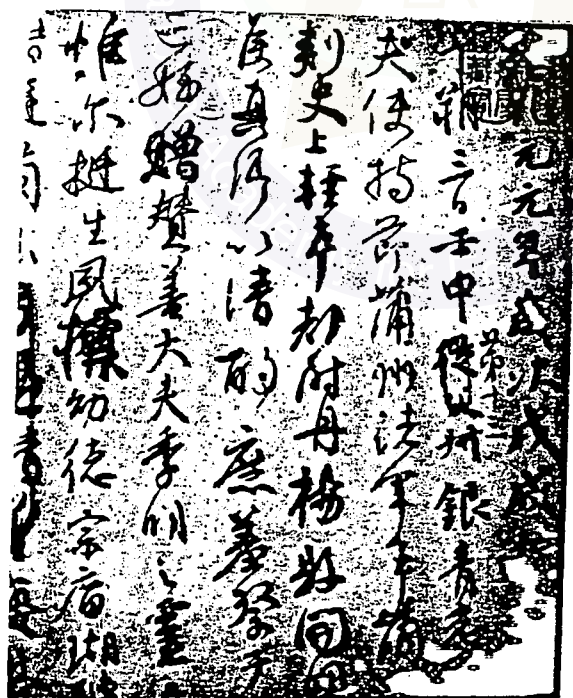 乾元元年歲次戊戌
朔三日壬申第十三從父叔銀青光
夫使持節蒲州諸軍事蒲
刺史上輕車都尉丹楊縣開國
侯真卿以清酌庶羞祭于
亡姪贈贊善大夫季明之靈
惟爾挺生夙標幼德宗廟瑚